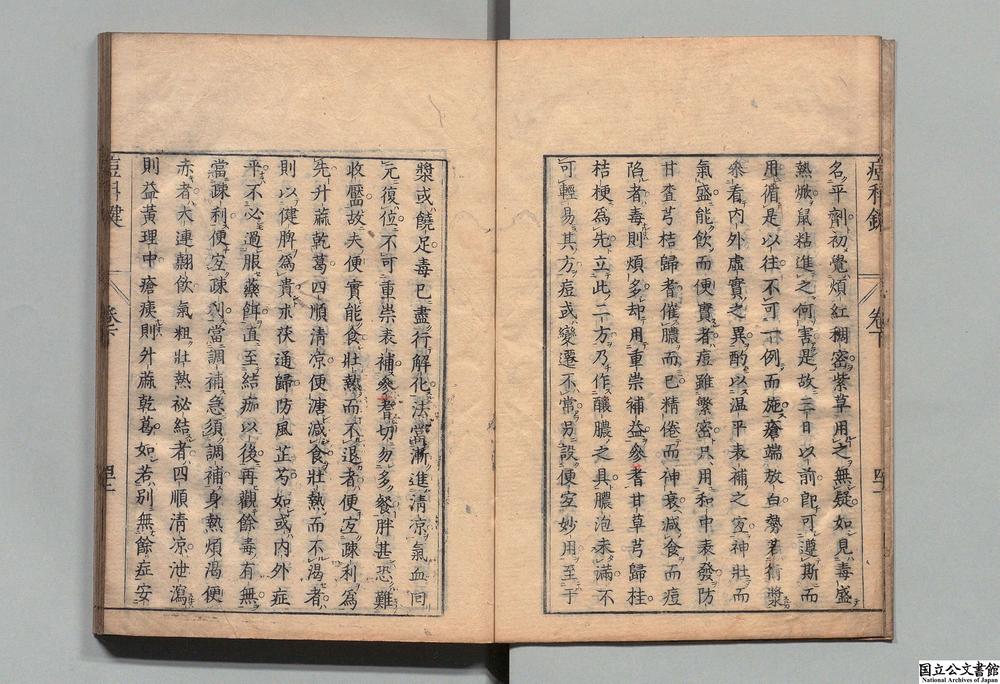 名平劑初覺煩紅稠密紫草用之無疑如見毒盛
熱㷟鼠粘進之何害是故三日以前卽可遵斯而
用循是以往不可一例而施瘡端放白勢若衛漿
叅看内外虛實之異酌以温平表補之宜神壯而
氣盛能飲而便實者痘雖繁密只用和中表發防
甘查芎桔歸耆催膿而已精倦而神衰減食而痘
陷者毒則煩多却用重崇補益參耆甘草芎歸桂
桔梗爲先立此二方乃作釀膿之具膿泡未滿不
可輕易其方痘或變遷不常另設便宜妙用至于
漿或饒足毒已盡行解化法當漸進清凉氣血囘
元復位不可重崇表補參耆切勿多餐胖甚恐難
收靨故夫便實能食壯熱而不退者便宜疎利爲
先升蔴乾葛四順清凉便溏減食壯熱而不渴者
則以健脾爲貴术茯通歸防風芷芍如或内外症
平不必過服藥餌直至結痂以後再觀餘毒有無
當疎利便宜疎利當調補急須調補身熱煩渴便
赤者大連翹飲氣粗壯熱祕結者四順清凉泄瀉
則益黄理中瘡痍則外蔴乾葛如若別無餘症安
痘科鍵
卷下
国立公文書館
National Archives of Japan